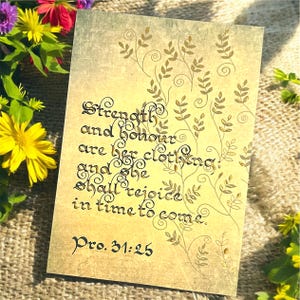 Strength
and honour
are her clothing
and she
shall rejoice
in time to come.
Pro. 31:25